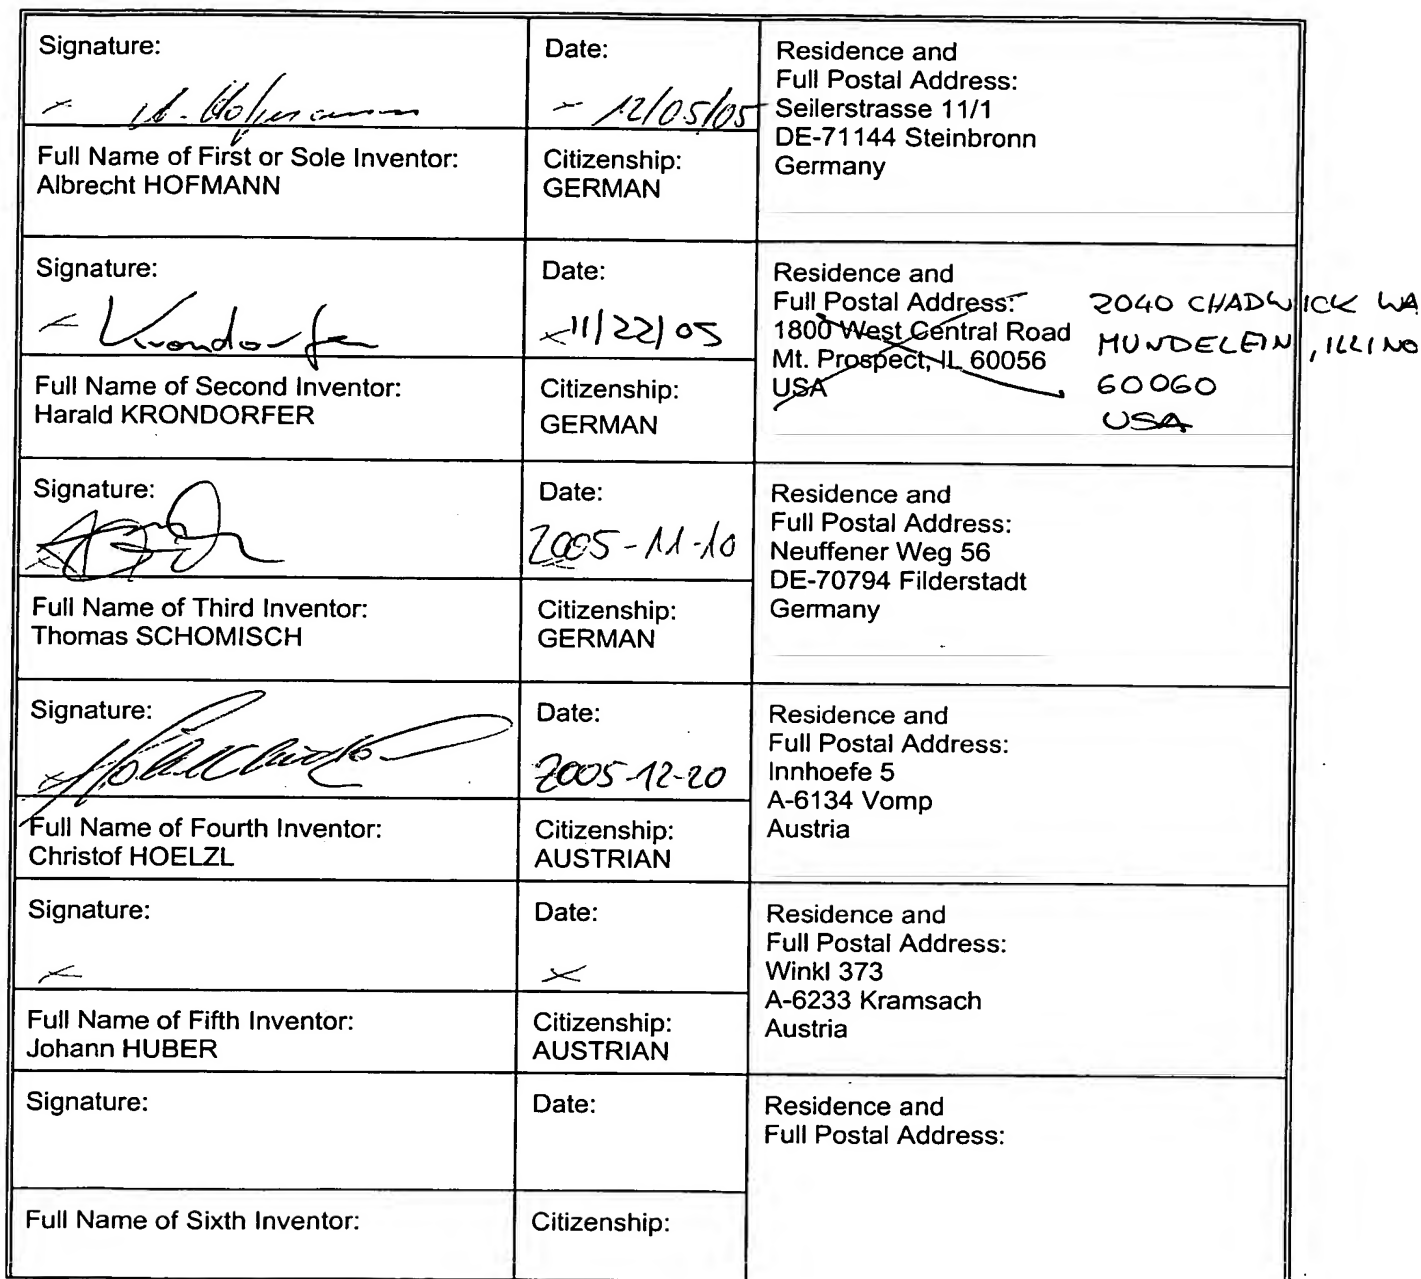 Signature:
A. Hofmann
Date:
12/05/05
Residence and
Full Postal Address:
Seilerstrasse 11/1
DE-71144 Steinbronn
Germany
Full Name of First or Sole Inventor:
Albrecht HOFMANN
Citizenship:
GERMAN
Signature:
Krondorfer
Date:
11/22/05
Residence and
Full Postal Address:
1800 West Central Road
Mt. Prospect, IL 60056
USA
2040 CHADWICK WA
MUNDELEIN, ILLINO
60060
USA
Full Name of Second Inventor:
Harald KRONDORFER
Citizenship:
GERMAN
Signature:
Date:
2005-11-10
Residence and
Full Postal Address:
Neuffener Weg 56
DE-70794 Filderstadt
Germany
Full Name of Third Inventor:
Thomas SCHOMISCH
Citizenship:
GERMAN
Signature:
Date:
2005-12-20
Residence and
Full Postal Address:
Innhoefe 5
A-6134 Vomp
Austria
Full Name of Fourth Inventor:
Christof HOELZL
Citizenship:
AUSTRIAN
Signature:
x
Date:
x
Residence and
Full Postal Address:
Winkl 373
A-6233 Kramsach
Austria
Full Name of Fifth Inventor:
Johann HUBER
Citizenship:
AUSTRIAN
Signature:
Date:
Residence and
Full Postal Address:
Full Name of Sixth Inventor:
Citizenship: